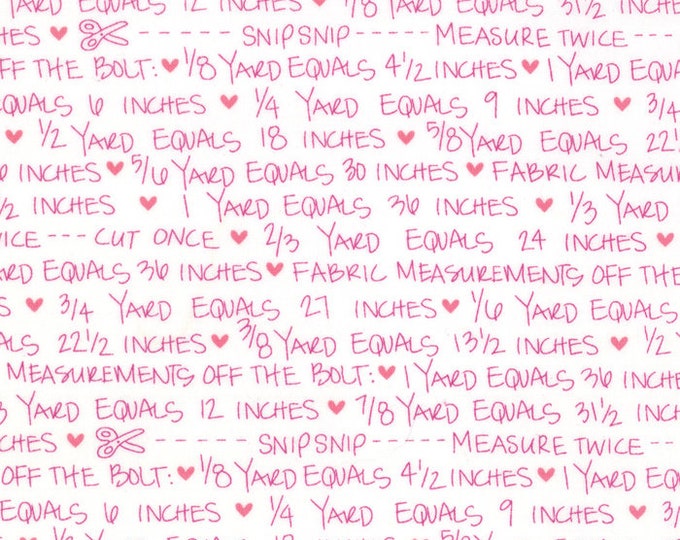 EQUALS 12 INCHES ♥ 7/8 YARD EQUALS 31 1/2 INCHES
HES ♥ ✂ ----- SNIP SNIP ----- MEASURE TWICE ---
OFF THE BOLT: ♥ 1/8 YARD EQUALS 4 1/2 INCHES ♥ 1 YARD EQUA
QUALS 6 INCHES ♥ 1/4 YARD EQUALS 9 INCHES ♥ 3/4
♥ 1/2 YARD EQUALS 18 INCHES ♥ 5/8 YARD EQUALS 22 1/
INCHES ♥ 5/6 YARD EQUALS 30 INCHES ♥ FABRIC MEASUR
/2 INCHES ♥ 1 YARD EQUALS 36 INCHES ♥ 1/3 YARD
ICE --- CUT ONCE ♥ 2/3 YARD EQUALS 24 INCHES ♥
RD EQUALS 36 INCHES ♥ FABRIC MEASUREMENTS OFF THE
S ♥ 3/4 YARD EQUALS 27 INCHES ♥ 1/6 YARD EQUALS
ALS 22 1/2 INCHES ♥ 3/8 YARD EQUALS 13 1/2 INCHES ♥ 1/2 Y
MEASUREMENTS OFF THE BOLT: ♥ 1 YARD EQUALS 36 INCHE
3 YARD EQUALS 12 INCHES ♥ 7/8 YARD EQUALS 31 1/2 INC
CHES ♥ ✂ ------ SNIP SNIP ----- MEASURE TWICE ---
OFF THE BOLT: ♥ 1/8 YARD EQUALS 4 1/2 INCHES ♥ 1 YARD EQUA
QUALS 6 INCHES ♥ 1/4 YARD EQUALS 9 INCHES ♥ 3/